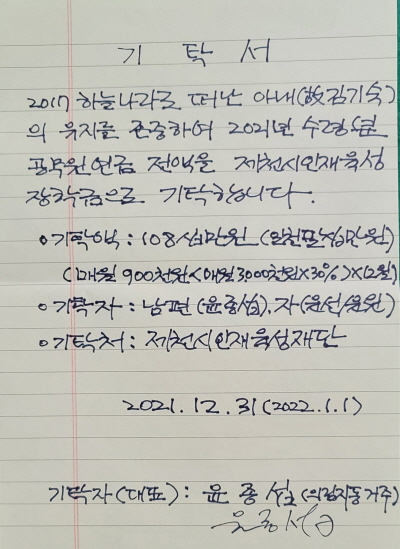 기 탁 서
2017 하늘나라로 떠난 아내(故김기숙)
의 유지를 존중하여 2021년 수령한
공무원연금 전액을 제천시인재육성
장학금으로 기탁합니다.
○기탁액 : 108십만원 (일천팔십만원)
(매월 900천원<매월 3000천원×30%)×12월)
○기탁자 : 남편(윤종섭), 자(윤선/윤원)
○기탁처 : 제천시인재육성재단
2021. 12. 31 (2022. 1. 1)
기탁자(대표) : 윤 종 섭 (의림지동거주)
윤종섭